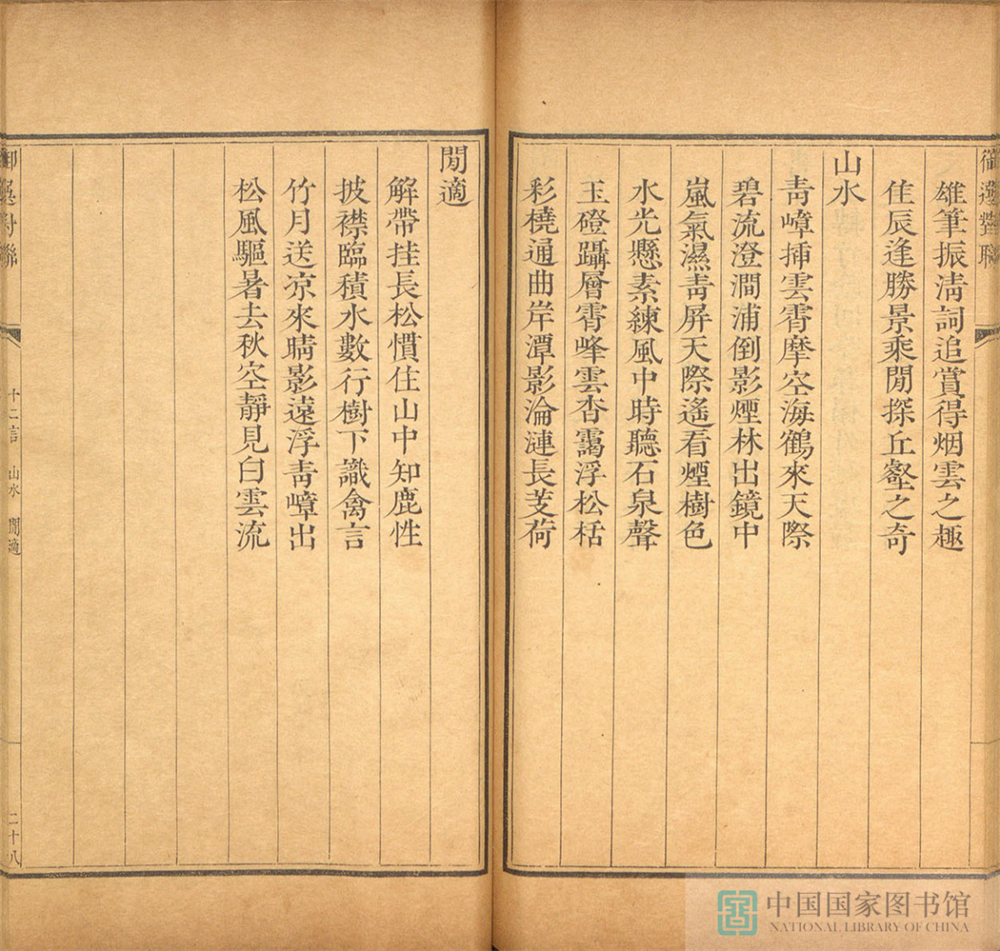 御選對聯
雄筆振淸詞追賞得烟雲之趣
佳辰逢勝景乘閒探丘壑之奇
山水
靑嶂揷雲霄摩空海鶴來天際
碧流澄澗浦倒影煙林出鏡中
嵐氣濕靑屏天際遙看煙樹色
水光懸素練風中時聽石泉聲
玉磴躡層霄峰雲杳靄浮松栝
彩橈通曲岸潭影淪漣長芰荷
閒適
解帶挂長松慣住山中知鹿性
披襟臨積水數行樹下識禽言
竹月送凉來晴影遠浮靑嶂出
松風驅暑去秋空靜見白雲流
御選對聯
十二言 山水 閒適
二十八
中国国家图书馆
NATIONAL LIBRARY OF CHINA